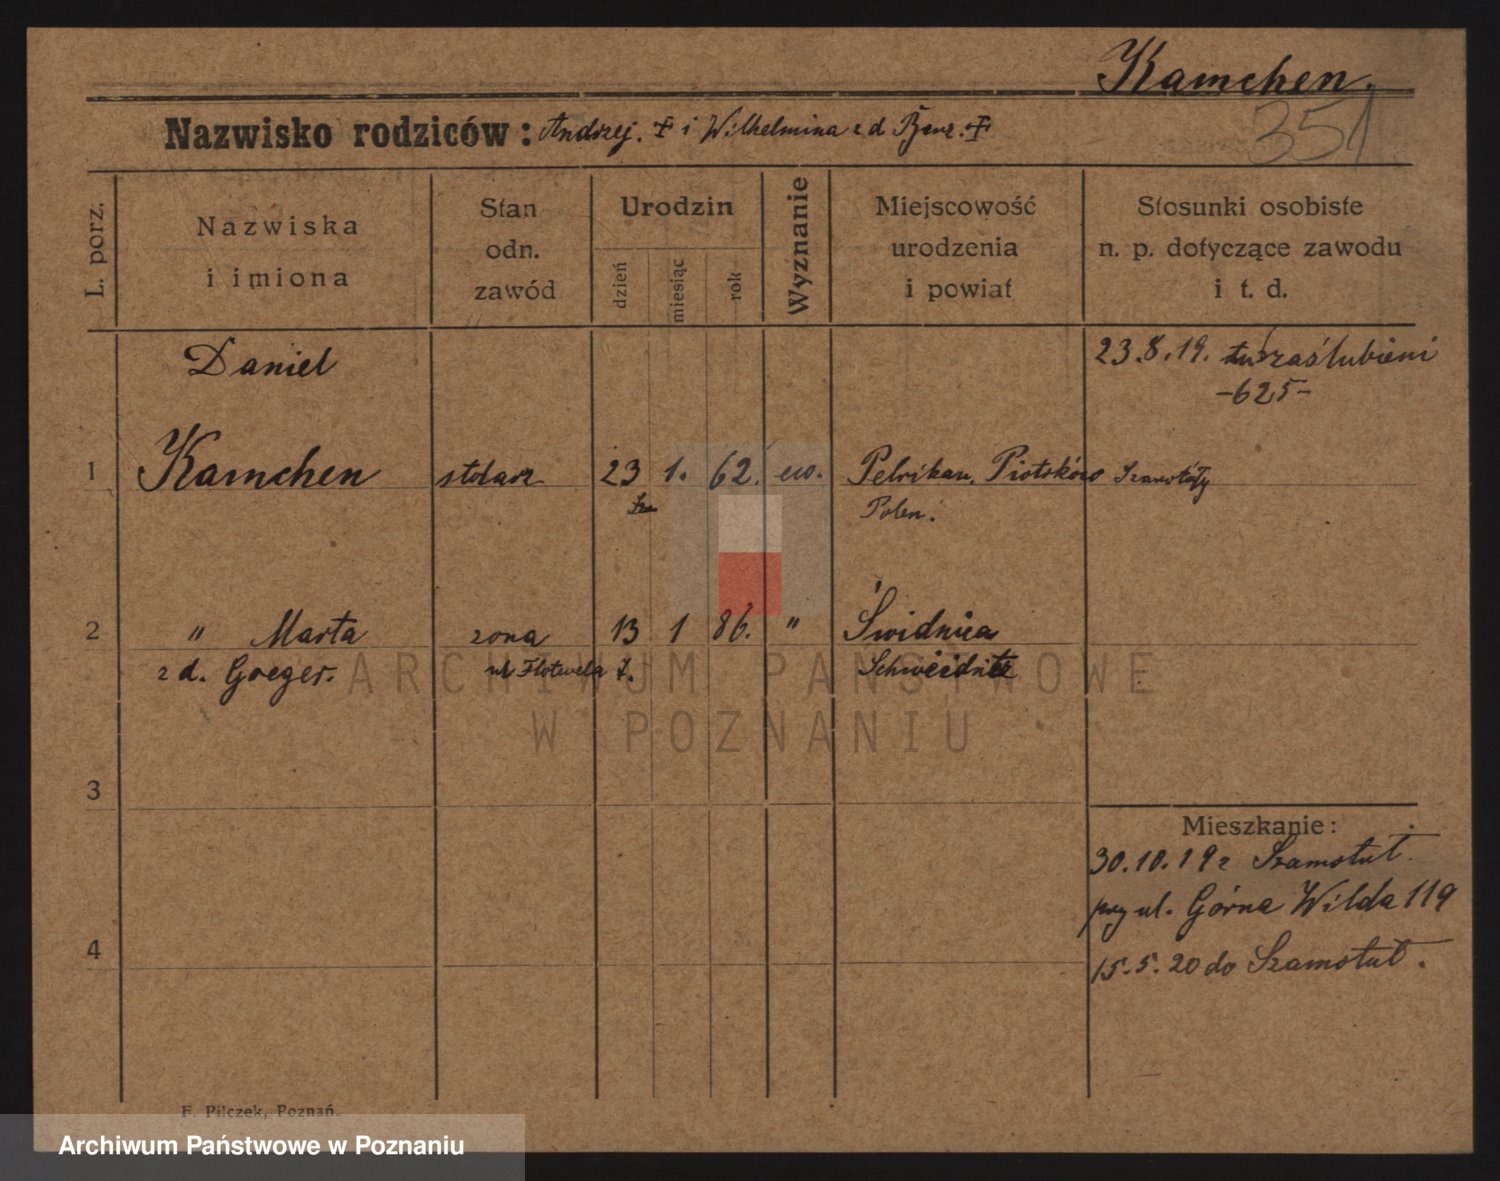 Kamchen.
351
Nazwisko rodziców: Andrzej. i Wilhelmina z d
L. porz.
Nazwiska
i imiona
Stan
odn.
zawód
Urodzin
dzień
miesiąc
rok
Wyznanie
Miejscowość
urodzenia
i powiat
Stosunki osobiste
n. p. dotyczące zawodu
i t. d.
Daniel
23.8.19. tu zaślubieni
-625-
1 Kamchen stolarz 23 1. 62. ew. Piotrków Szamotuły
Polen.
2 " Marta zona 13 1 86. " Świdnica
z d. Greger. ul Flotwela 7. Schweidnitz
3
4
Mieszkanie:
30.10.19 z Szamotuł.
przy ul. Górna Wilda 119
15.5.20 do Szamotuł.
F. Pilczek, Poznań.
ARCHIWUM PAŃSTWOWE
W POZNANIU
Archiwum Państwowe w Poznaniu